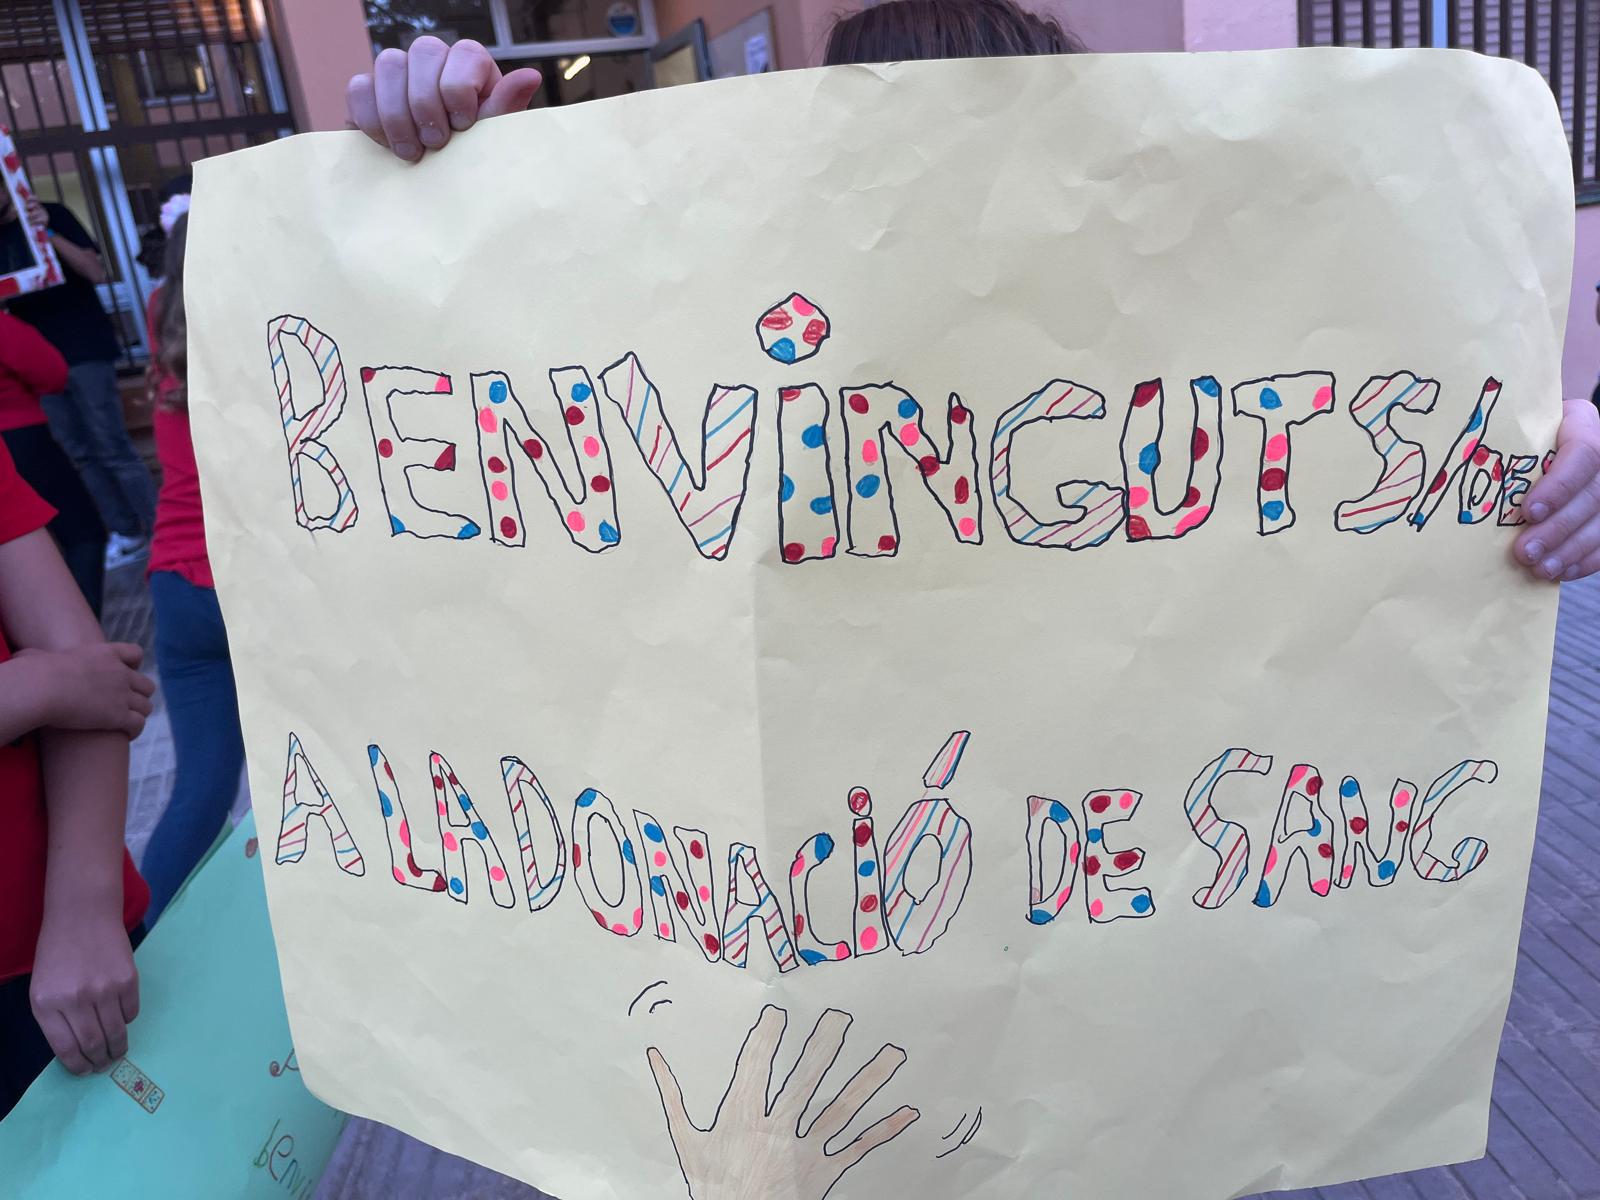 BENVINGUTS/DES
A LA DONACIÓ DE SANG
benvi